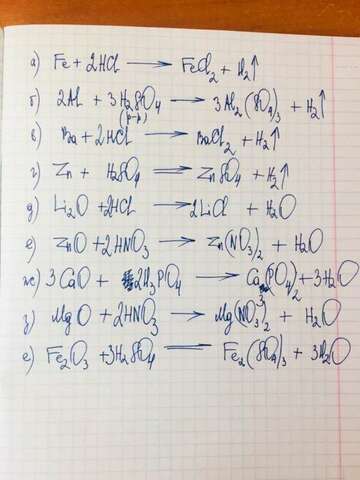 а) Fe + 2HCl → FeCl₂ + H₂↑
б) 2Al + 3H₂SO₄ → 3Al₂(SO₄)₃ + H₂↑
(р-р)
в) Ba + 2HCl → BaCl₂ + H₂↑
г) Zn + H₂SO₄ = ZnSO₄ + H₂↑
д) Li₂O + 2HCl → 2LiCl + H₂O
е) ZnO + 2HNO₃ → Zn(NO₃)₂ + H₂O
ж) 3CaO + 2H₃PO₄ → Ca₃(PO₄)₂ + 3H₂O
з) MgO + 2HNO₃ → Mg(NO₃)₂ + H₂O
е) Fe₂O₃ + 3H₂SO₄ = Fe₂(SO₄)₃ + 3H₂O